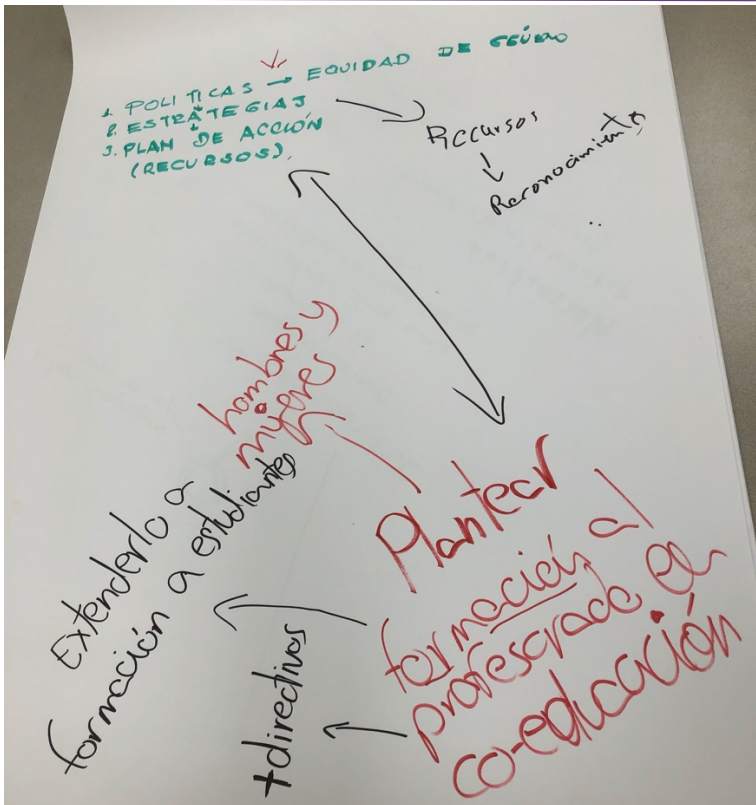 1. POLITICAS → EQUIDAD DE GÉUERO
2. ESTRATEGIAS
3. PLAN DE ACCIÓN
(RECURSOS).
Recursos
↓
Reconocimiento
hombres y
mujeres
Extenderlo a
formación a estudiantes
Plantear
formación al
profesorado en
co-educación
+directivos